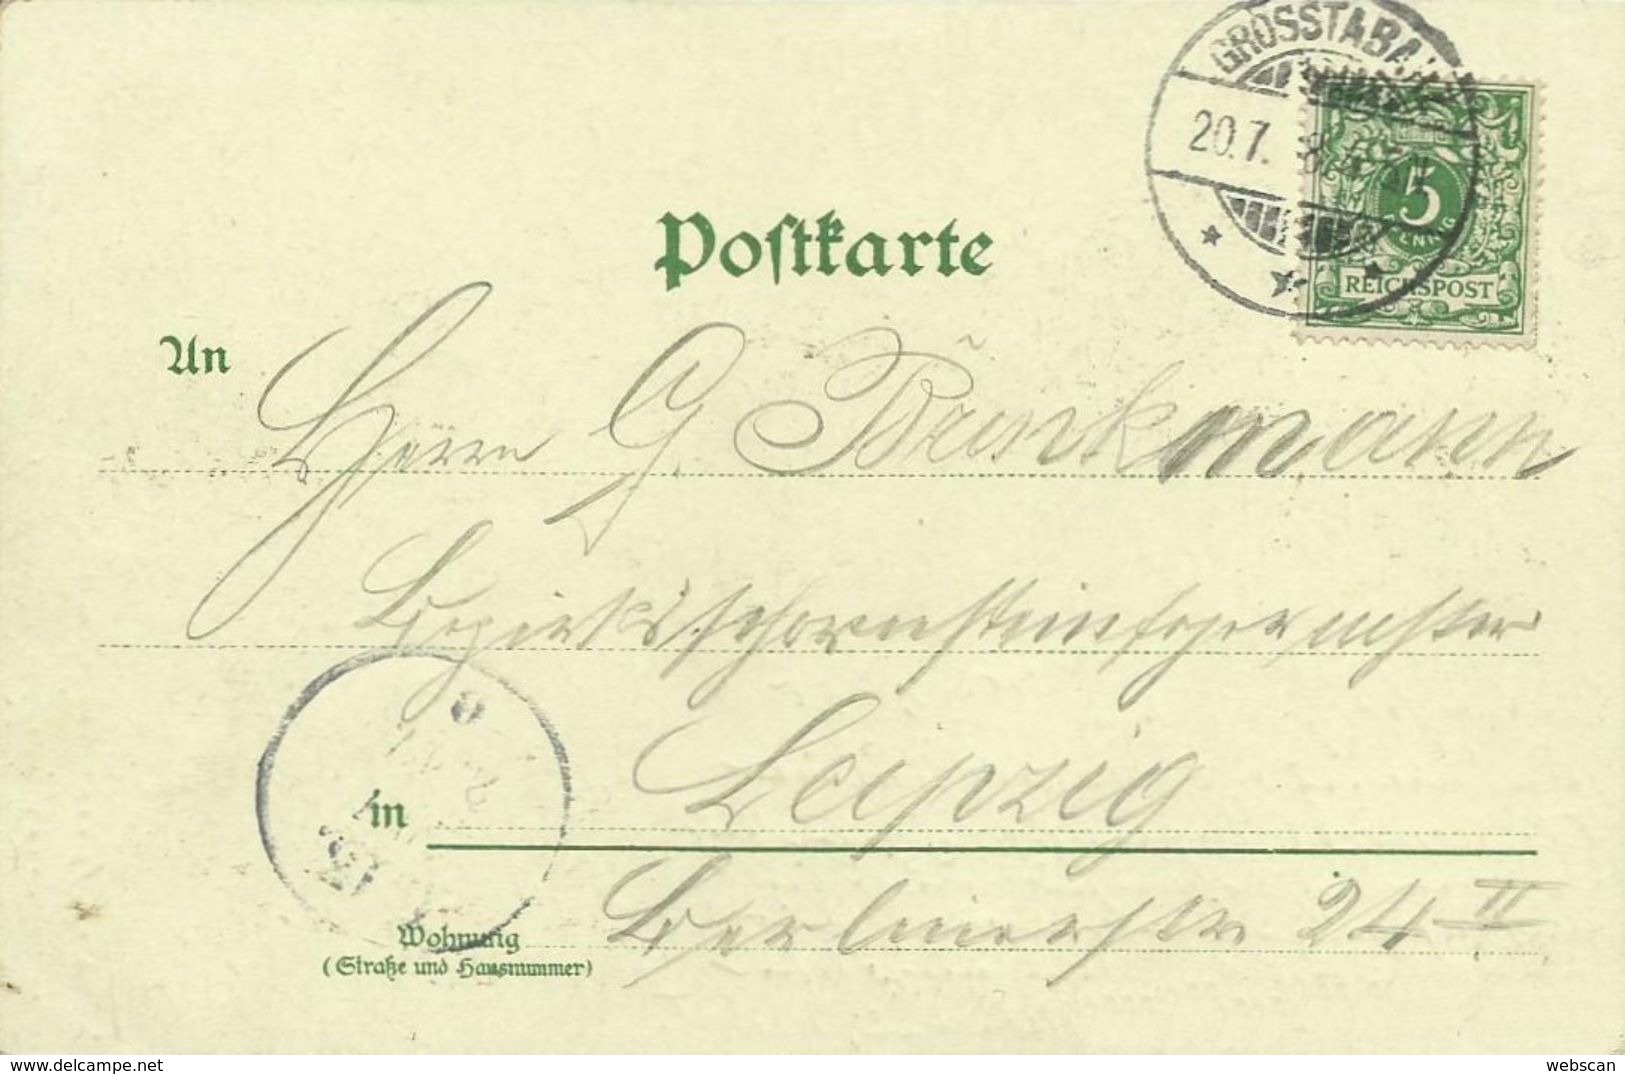 GROSSTABA
20.7.
5
PFENNIG
REICHSPOST
Postkarte
An
Herrn G. Brinkmann
Bezirksschornsteinfegermstr
in Leipzig
Wohnung
(Straße und Hausnummer)
Berlinerstr 24 II
www.delcampe.net
webscan